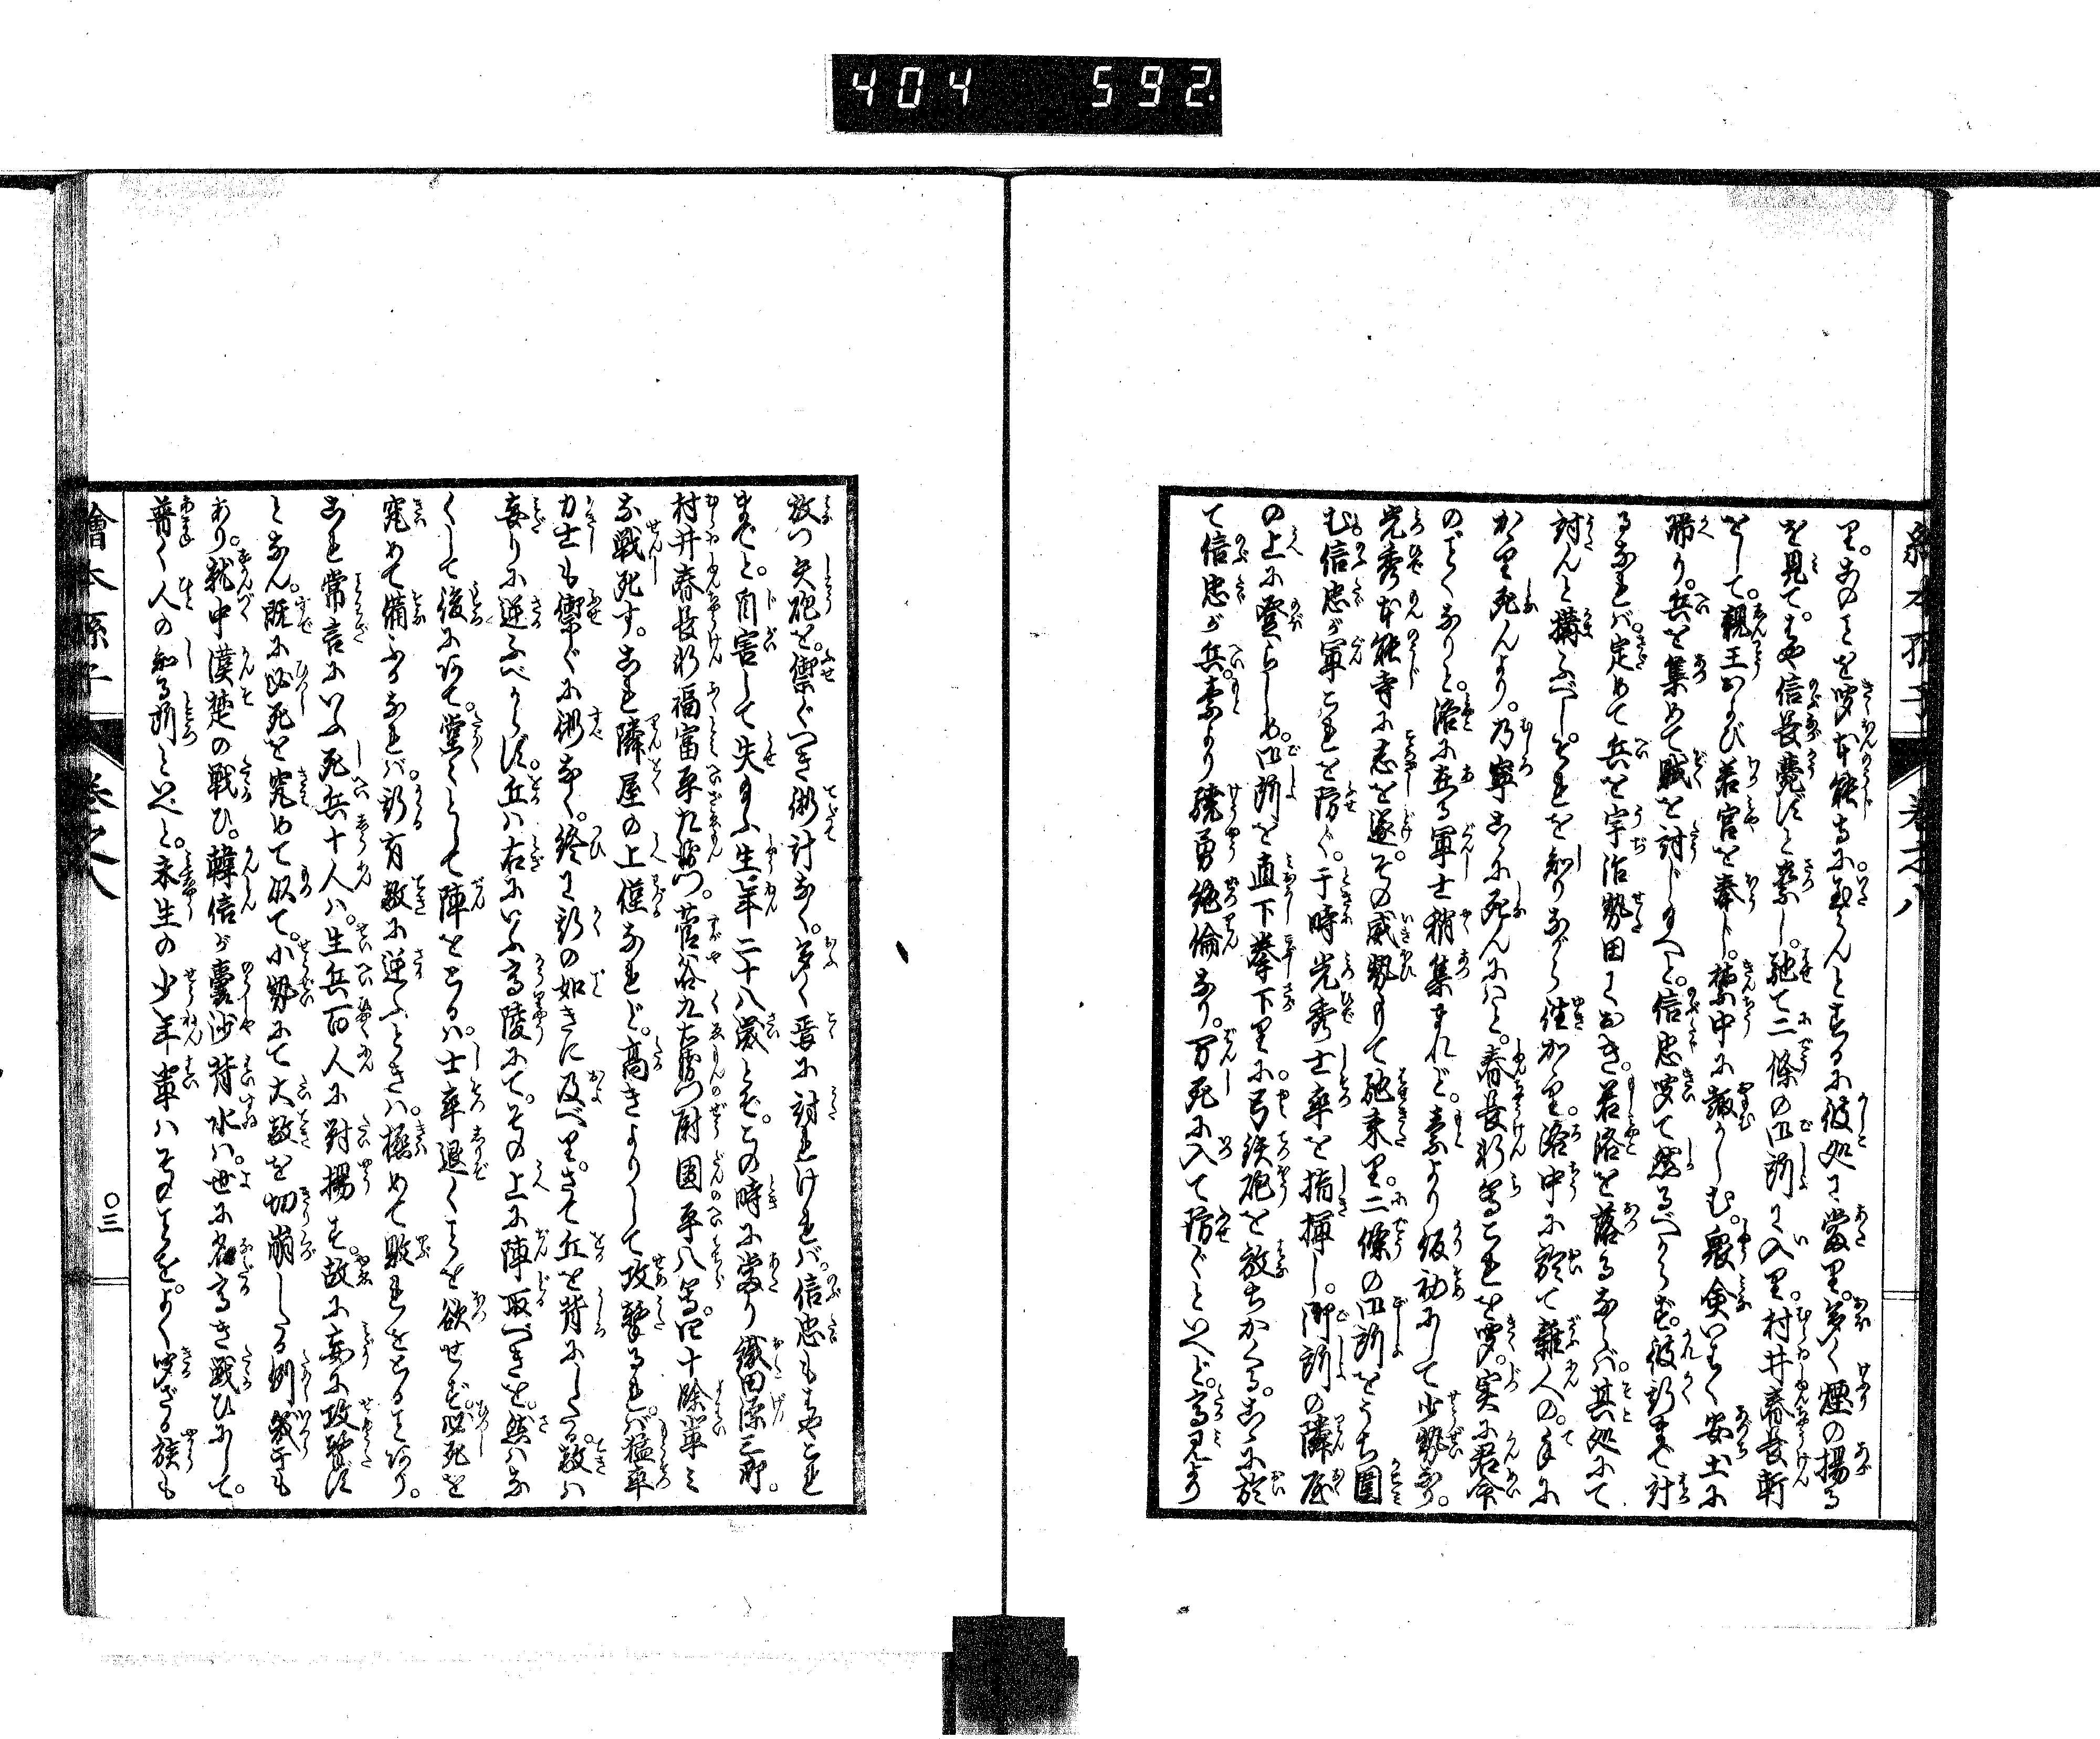 404 592
繪本孫子 巻之八
里。このことを聞本能寺に至らんとするに彼処に當里。多く煙の揚る
を見て。はや信長薨ずと察し。馳て二條の御所に入里。村井春長軒
をして。親王および若宮を奉じ。禁中に遜かしむ。衆僉いはく安土に
帰り。兵を集めて賊を討じ玉へと。信忠聞て然るべからず。彼斯まで計
るなれバ。定めて兵を宇治勢田におき。若洛を落るならバ。其処にて
討んと搆ふべし。それを知りながら往か里。洛中に於て雑人の。手に
か里死んより。乃寧こゝに死んにハと。春長軒等これを聞。実に君命
のごとくなりと。洛に在る軍士稍集まれど。素より仮初にして少勢なり。
光秀本能寺に志を遂。その威勢もて馳来里。二條の御所をうち圍
む。信忠が軍これを防ぐ。于時光秀士卒を指揮し。御所の隣屋
の上に登らしめ。御所を直下拳下里に。弓鉄砲を放ちかくる。こゝに於
て信忠が兵。素より驍勇絶倫なり。万死に入て防ぐといへど。高みより
放つ矢砲を。禦ぐべき術計なく。多く畳に討れけれバ。信忠もはやこれ
までと。自害して失玉ふ生年二十八歳とぞ。この時に當り織田源三郎。
村井春長軒福富平左衛門。菅谷九右衛門尉團平八等。四十餘輩み
な戦死す。これ隣屋の上僅なれど。高きよりして攻撃るれバ。猛卒
力士も禦ぐに術なく。終に斯の如きに及べ里。さて丘を背にしたる。敵ハ
妄りに逆ふべからず。丘ハ右にいふ高陵にて。その上に陣取べきを。然ハな
くして後にあて。堂々として陣をとるハ。士卒退くことを欲せず。必死を
究めて備ふるなれバ。斯有敵に逆ふときハ。極めて敗れをとることあり。
これ常言にいふ死兵十人ハ。生兵百人に對揚す。故に妄に攻撃ず
となん。既に必死を究めて似て。小勢にて大敵を切崩したる例幾千も
あり。就中漢楚の戦ひ。韓信が嚢沙背水ハ。世に名高き戦ひにして。
普く人の知る所といへど。未生の少年輩ハそのことを。よく聞ざる族も
繪本孫子 巻之八 〇三